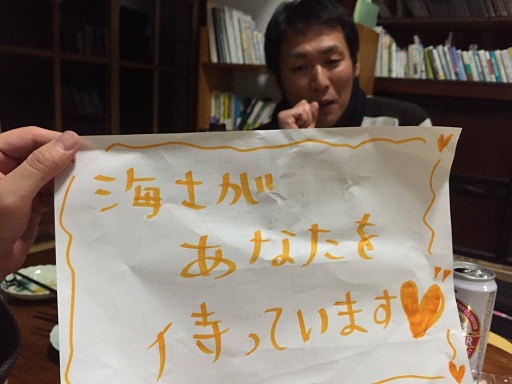 海さが
あなたを
待っています